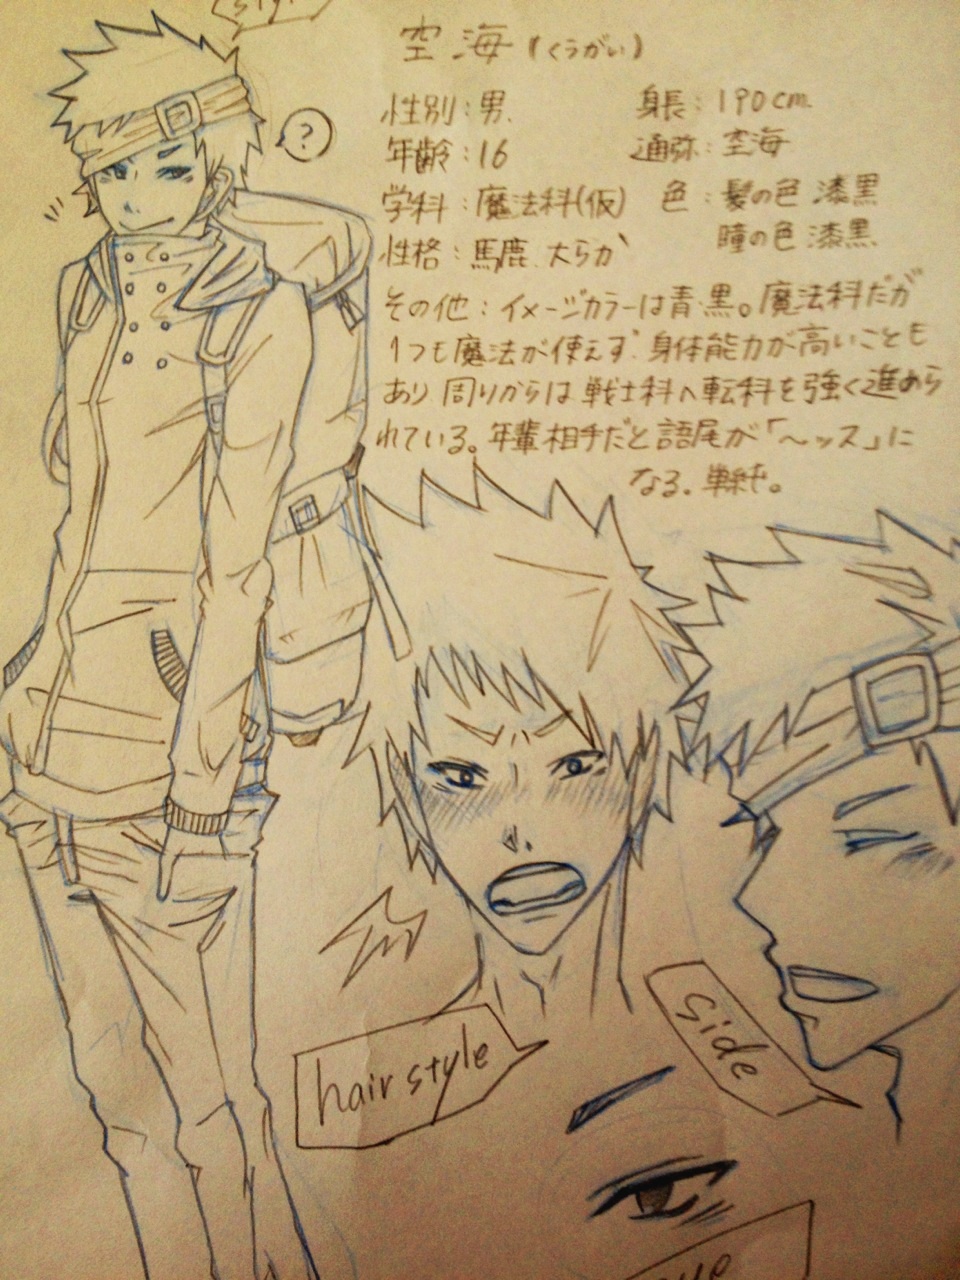 style
空海(くうがい)
性別:男.
身長:190cm.
?
年齢:16
通弥:空海
学科:魔法科(仮)
色:髪の色 漆黒
瞳の色 漆黒
性格:馬鹿.大らか
その他:イメージカラーは青・黒。魔法科だが
1つも魔法が使えず.身体能力が高いことも
あり周りからは戦士科へ転科を強く進めら
れている。年輩相手だと語尾が「~ッス」に
なる.単純。
side
hair style
eye